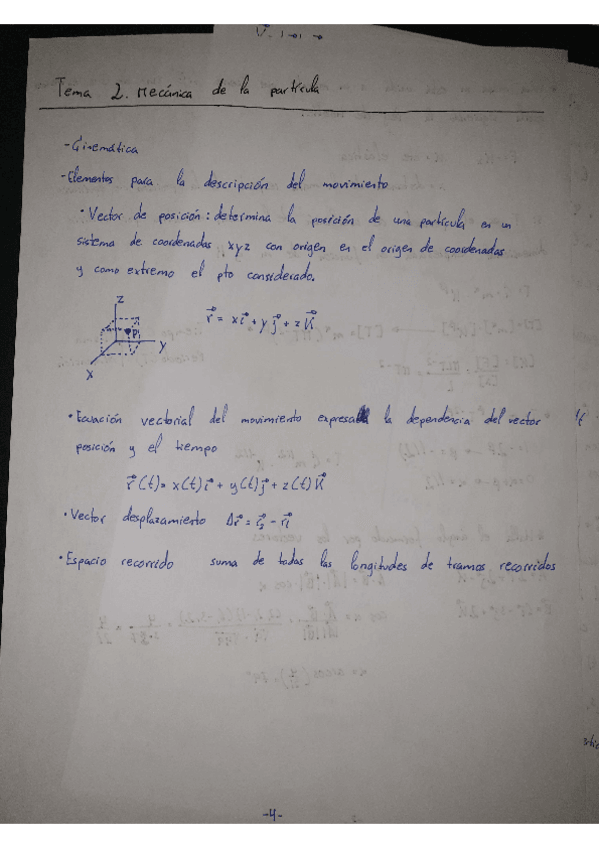 Tema 2. Mecánica de la partícula
- Cinemática
- Elementos para la descripción del movimiento
• Vector de posición: determina la posición de una partícula en un
sistema de coordenadas xyz con origen en el origen de coordenadas
y como extremo el pto considerado.
z
P
y
x
r⃗ = xi⃗ + yj⃗ + zk⃗
• Ecuación vectorial del movimiento expresa la dependencia del vector
posición y el tiempo
r⃗(t) = x(t)i⃗ + y(t)j⃗ + z(t)k⃗
• Vector desplazamiento Δr⃗ = r⃗f - r⃗i
• Espacio recorrido suma de todas las longitudes de tramos recorridos
-4-